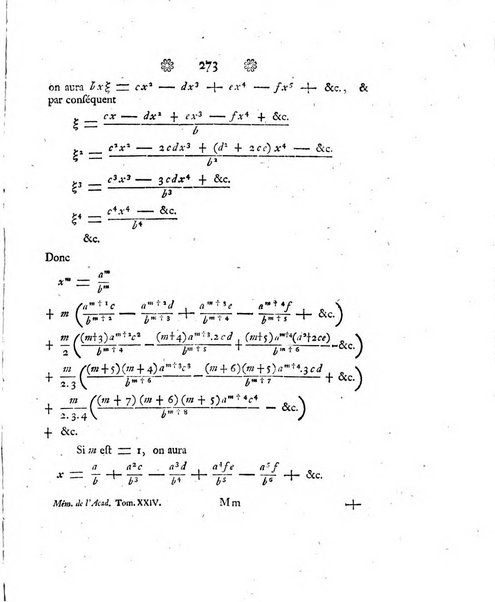 273
on aura bxξ = cx² — dx³ + ex⁴ — fx⁵ + &c., &
par conséquent
ξ = (cx — dx² + ex³ — fx⁴ + &c.)/b
ξ² = (c²x² — 2cdx³ + (d² + 2ce) x⁴ — &c.)/b²
ξ³ = (c³x³ — 3cdx⁴ + &c.)/b³
ξ⁴ = (c⁴x⁴ — &c.)/b⁴
&c.
Donc
xᵐ = aᵐ/bᵐ
+ m (aᵐ⁺¹c/bᵐ⁺² — aᵐ⁺²d/bᵐ⁺³ + aᵐ⁺³e/bᵐ⁺⁴ — aᵐ⁺⁴f/bᵐ⁺⁵ + &c.)
+ m/2 ((m+3)aᵐ⁺²c²/bᵐ⁺⁴ — (m+4)aᵐ⁺³.2cd/bᵐ⁺⁵ + (m+5)aᵐ⁺⁴(d²+2ce)/bᵐ⁺⁶ - &c.)
+ m/2.3 ((m+5)(m+4)aᵐ⁺³c³/bᵐ⁺⁶ — (m+6)(m+5)aᵐ⁺⁴.3cd/bᵐ⁺⁷ + &c.)
+ m/2.3.4 ((m+7)(m+6)(m+5)aᵐ⁺⁴c⁴/bᵐ⁺⁸ — &c.)
+ &c.
Si m est = 1, on aura
x = a/b + a²c/b³ — a³d/b⁴ + a⁴fe/b⁵ — a⁵f/b⁶ + &c.
Mém. de l'Acad. Tom. XXIV. Mm +